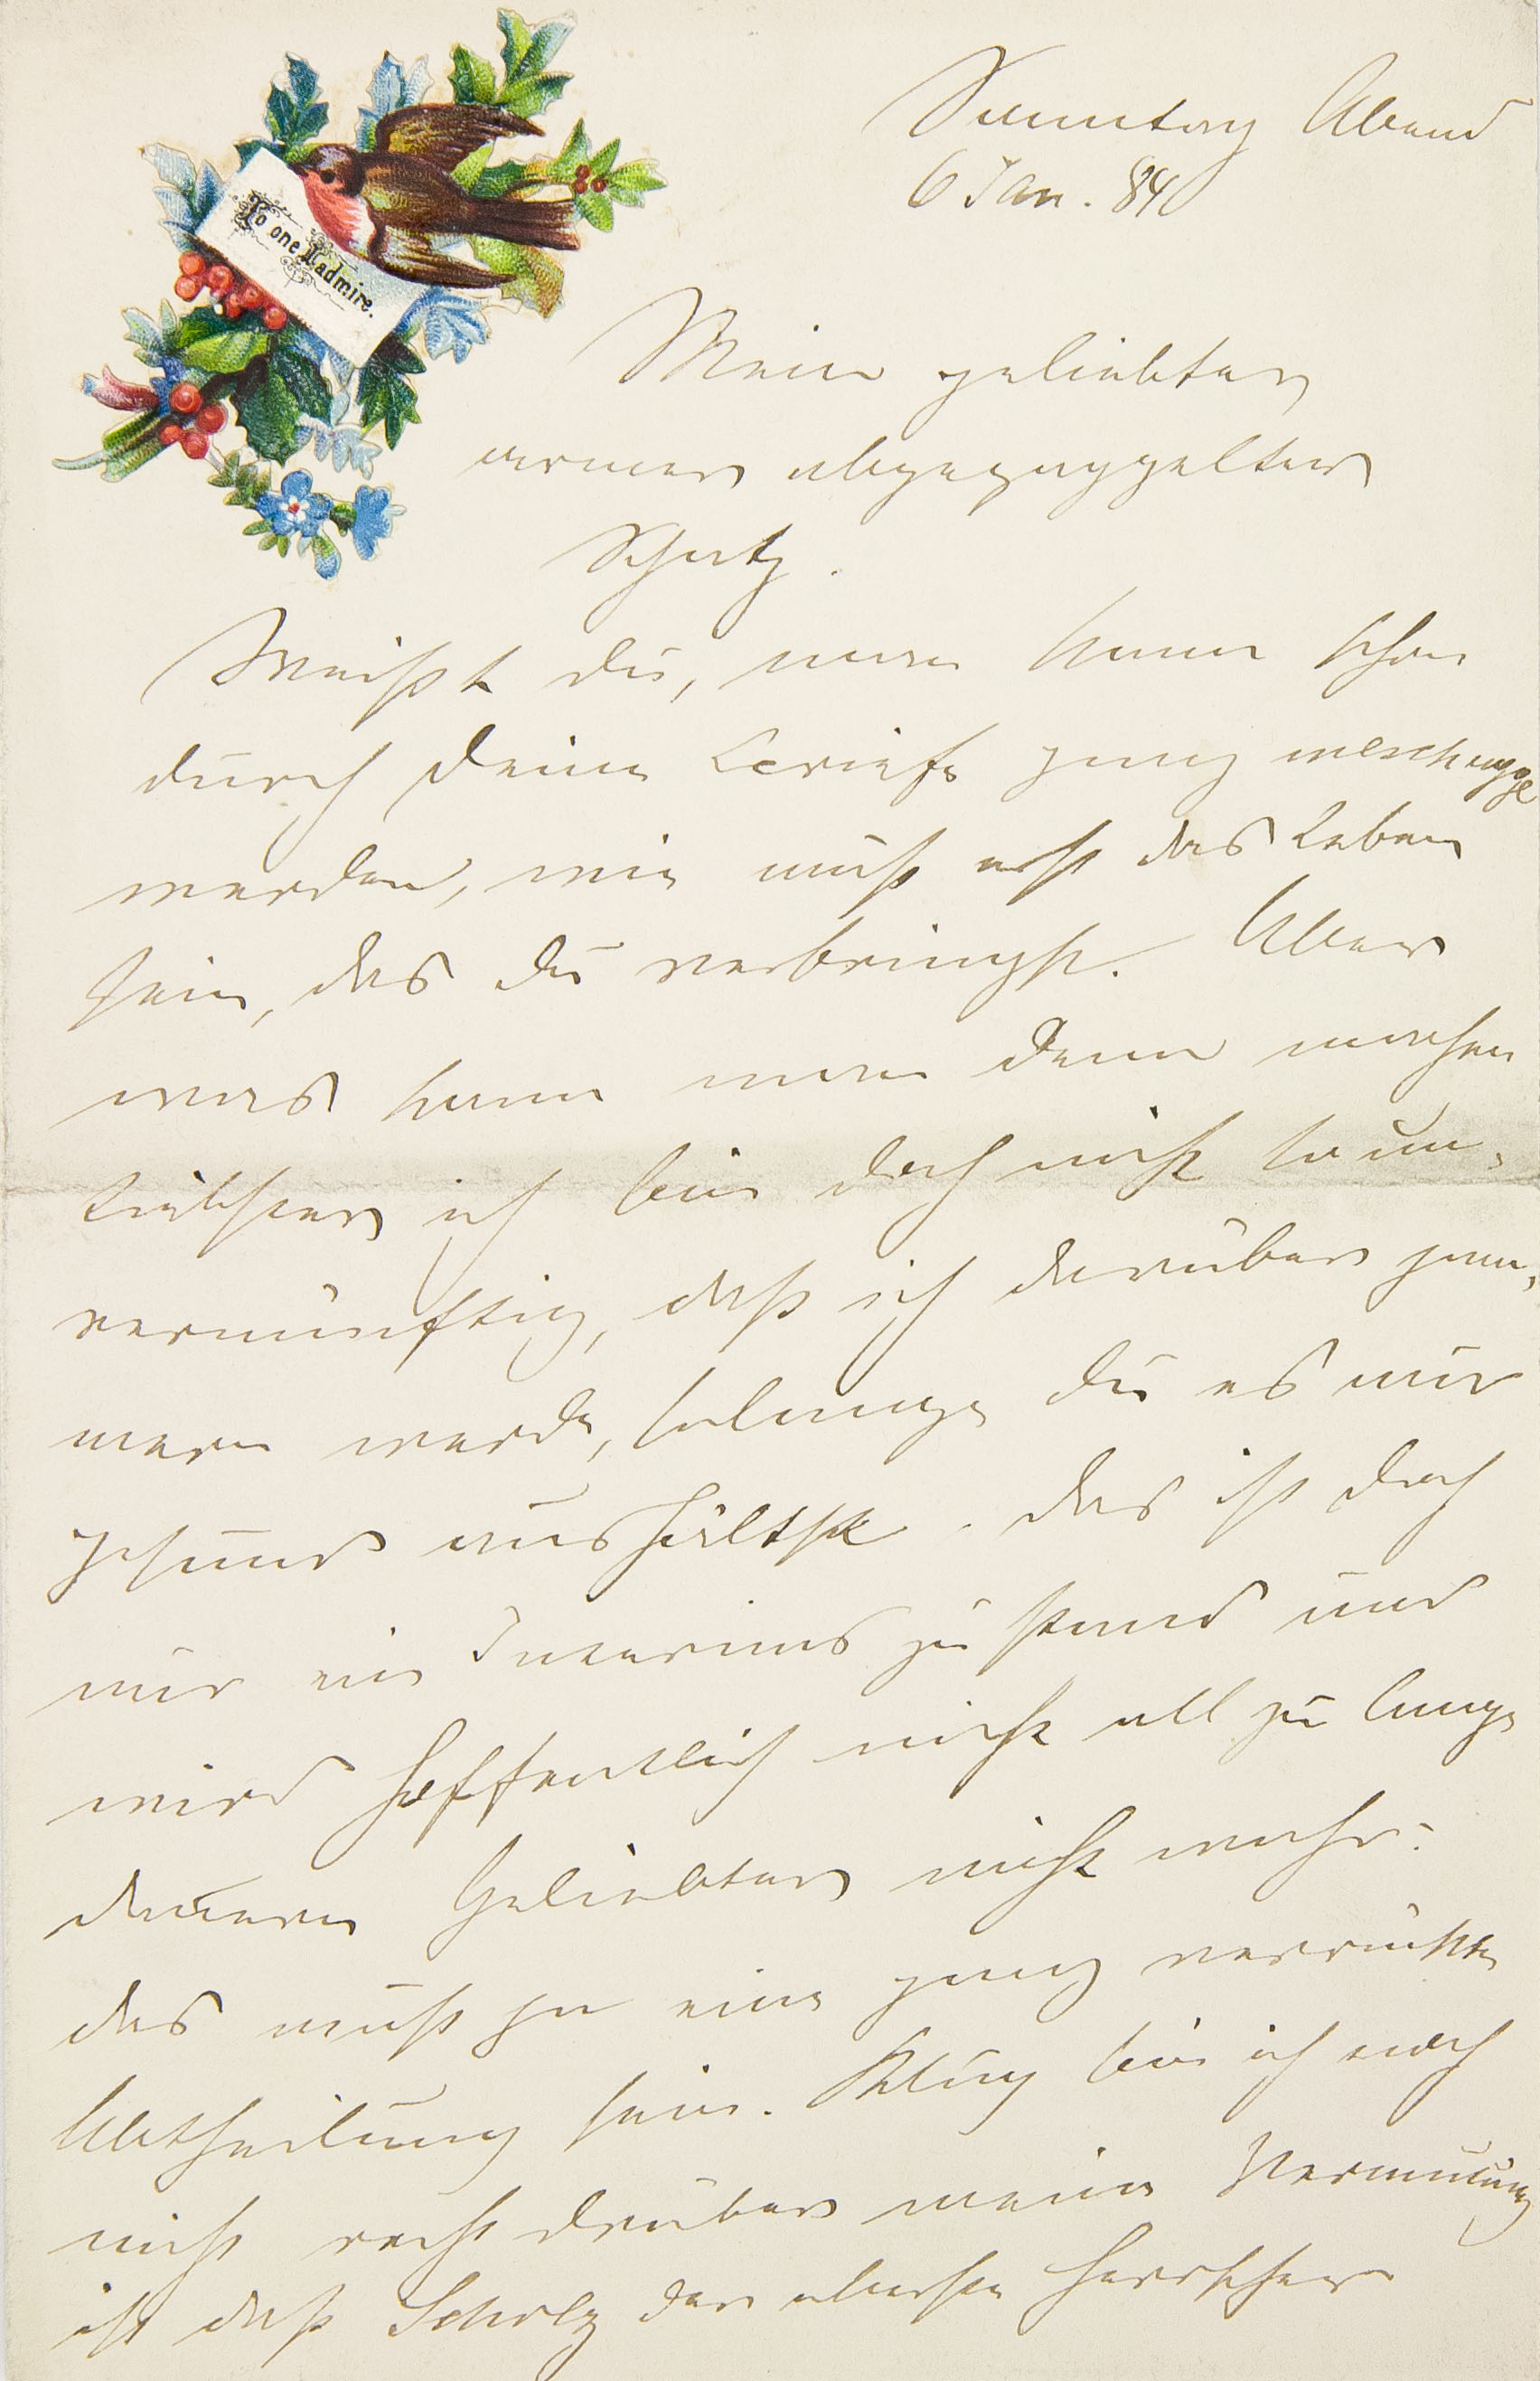 To one I admire.
Sonntag Abend
6 Jan. 84
Mein geliebter
armer abgezappelter
Schatz.
Weißt du, man kann schon
durch Deine Briefe ganz meschugge
werden, wie muß erst das Leben
sein, das Du verbringst. Aber
was kann man denn machen
Liebster ich bin doch nicht so un-
vernünftig, daß ich darüber jam-
mern werde, solange Du es nur
gesund aushältst. Das ist doch
nur ein Interimszustand und
wird hoffentlich nicht all zu lange
dauern Geliebter nicht wahr?
das muß ja eine ganz verrückte
Abtheilung sein. Klug bin ich noch
nicht recht drüber meine Vermutung
ist daß Scholz der oberste Herrscher